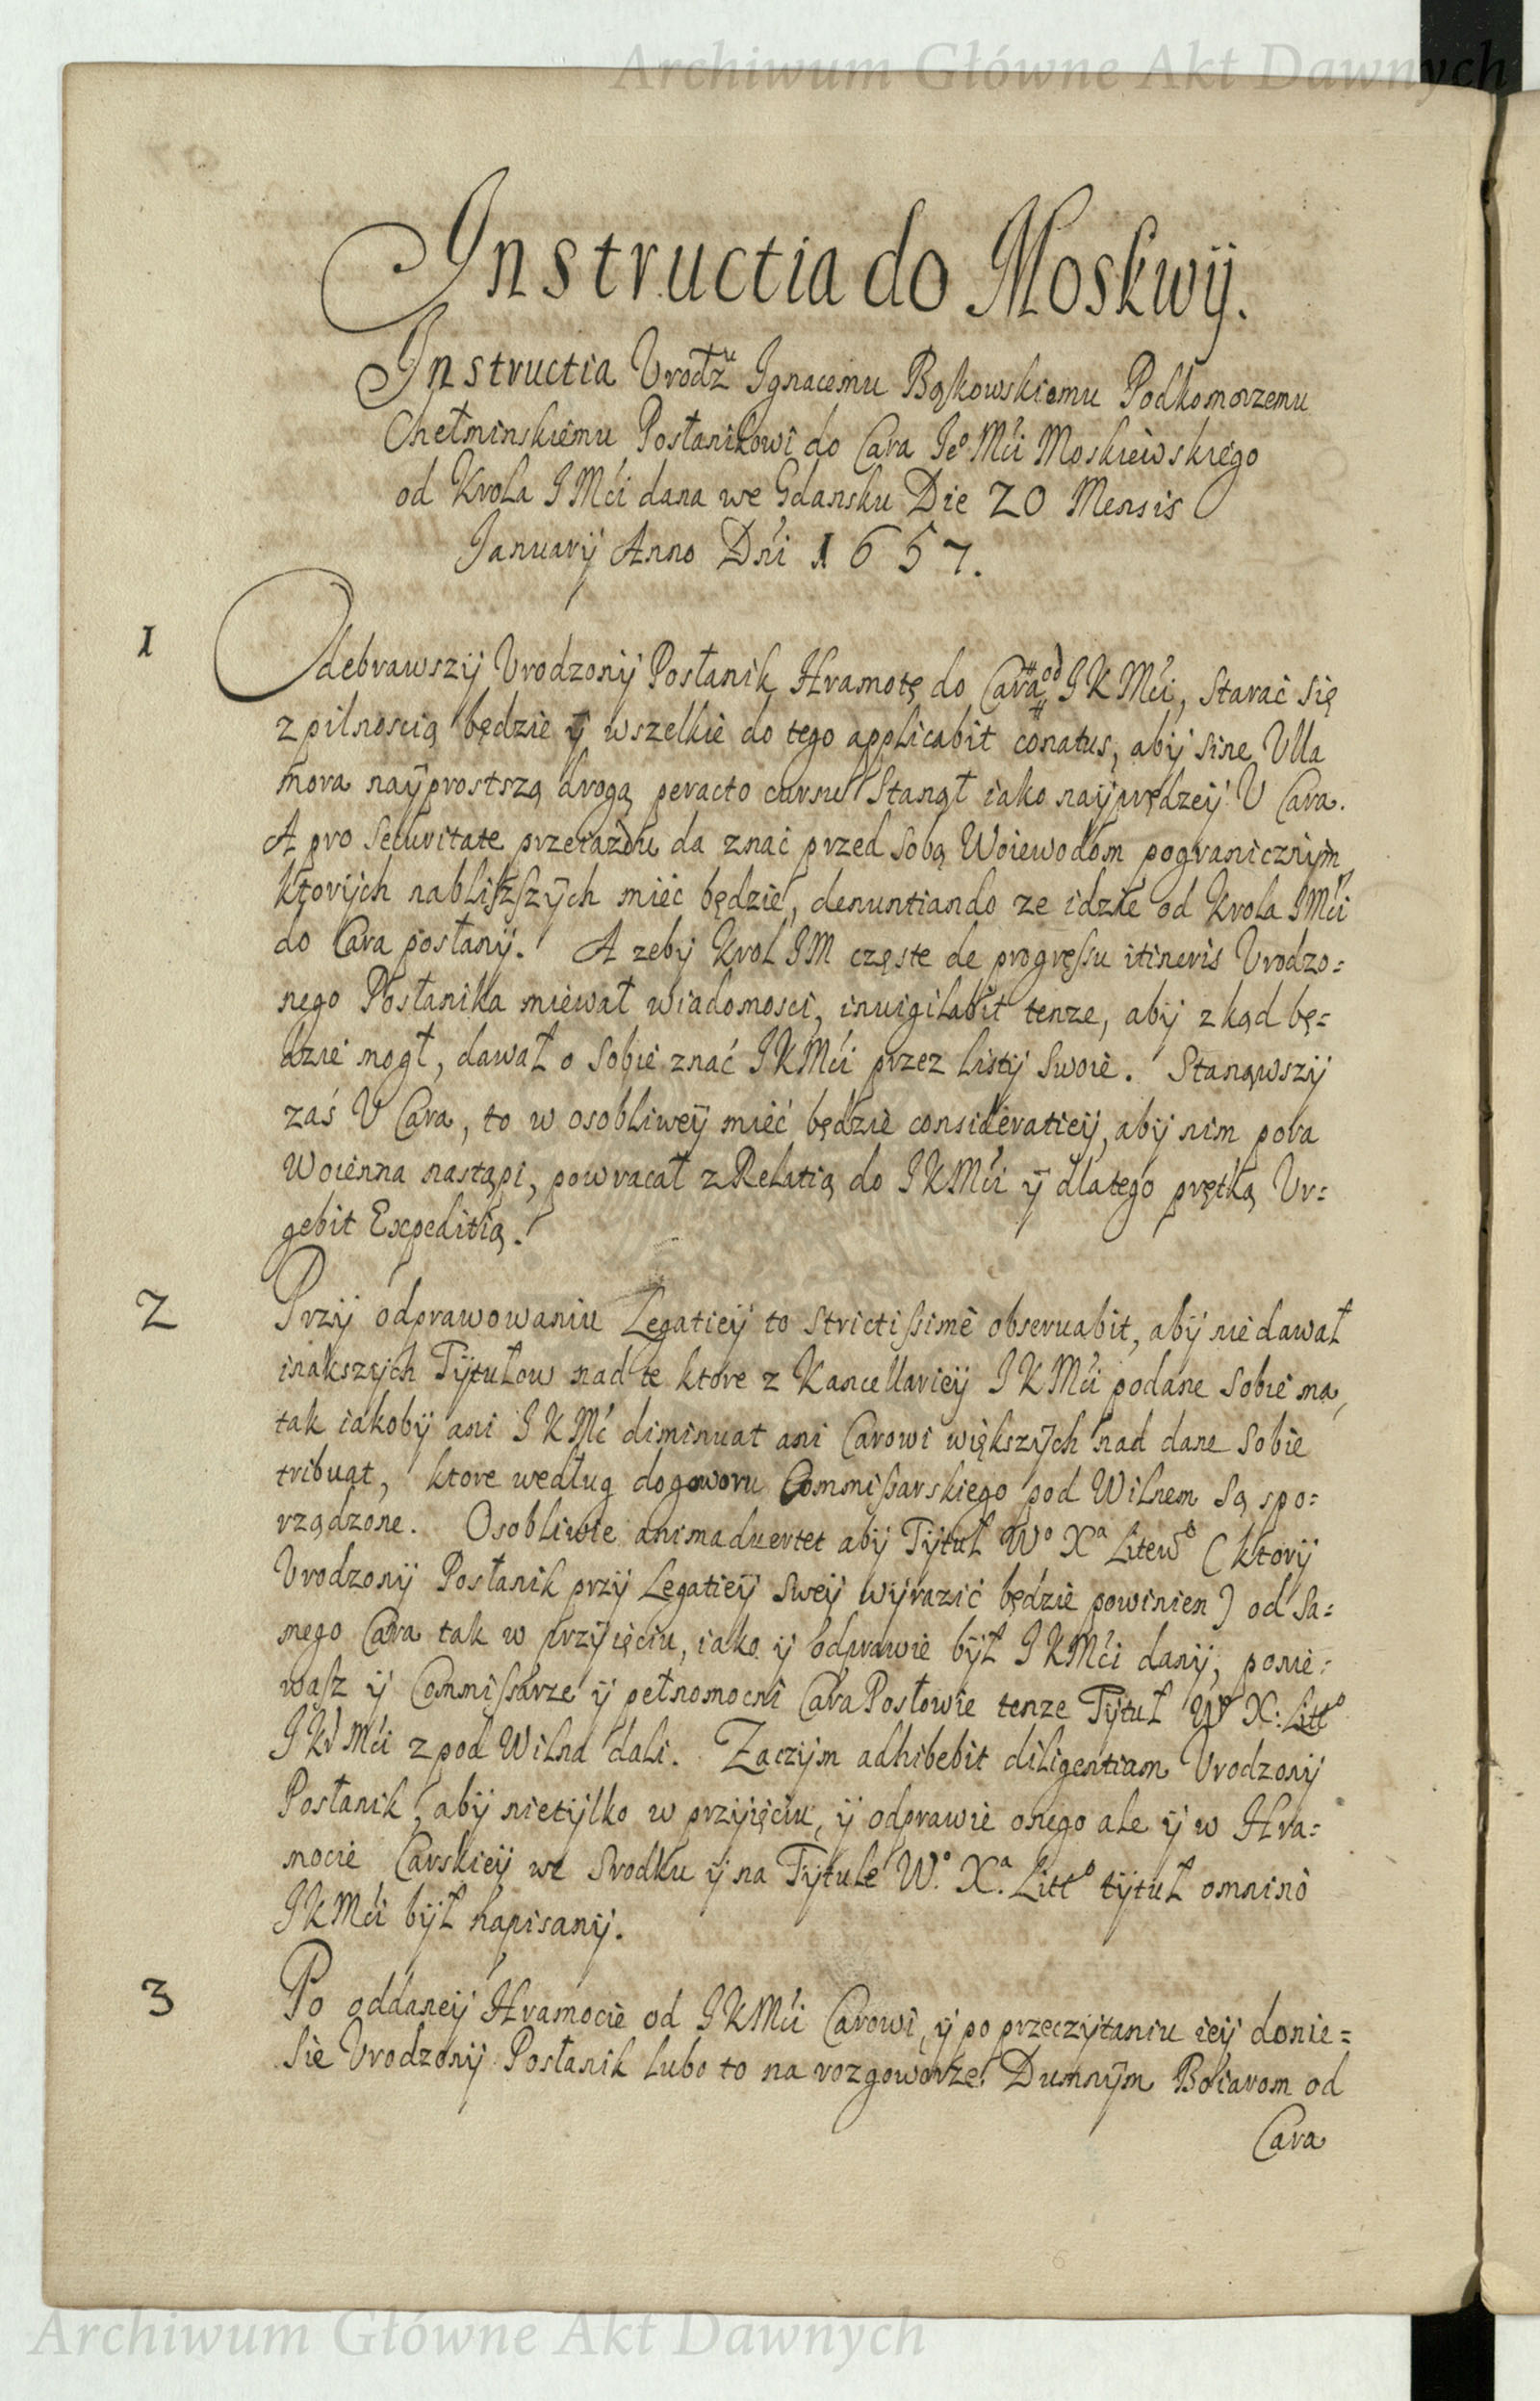 Archiwum Główne Akt Dawnych
Instructia do Moskwÿ.
Instructia Vrodzu Ignacemu Bąkowskiemu Podkomorzemu
Chełminskiemu Posłanikowi do Cara Jeo Mći Moskiewskiego
od Krola J Mći dana we Gdansku Die 20 Mensis
Januarÿ Anno Dńi 1657.
1
Odebrawszÿ Vrodzonÿ Posłanik Hramotę do Cara od J K Mći, starać się
z pilnoscią będzie ÿ wszelkie do tego applicabit conatus, abÿ sine Vlla
mora naÿprostszą drogą peracto cursu stanął iako naÿprędzeÿ V Cara.
A pro securitate przeiazdu da znać przed sobą Woiewodom pogranicznÿm
ktorÿch nabliższÿch mieć będzie, denuntiando ze idzie od Krola J Mći
do Cara posłanÿ. A zebÿ Krol J M częste de progressu itineris Vrodzo=
nego Posłanika miewał wiadomosci, inuigilabit tenze, abÿ zkąd bę=
dzie mogł, dawał o sobie znać J K Mći przez listÿ swoie. Stanąwszÿ
zaś V Cara, to w osobliweÿ mieć będzie consideratieÿ, abÿ nim pora
woienna nastąpi, powracał z Relatią do J K Mći ÿ dlatego prętką Vr=
gebit Expeditią.
2
Przÿ odprawowaniu Legatieÿ to strictissimè obseruabit, abÿ nie dawał
inakszÿch Tÿtułow nad te ktore z Kancellarieÿ J K Mći podane sobie ma,
tak iakobÿ ani J K Mć diminuat ani Carowi większÿch nad dane sobie
tribuat, ktore według dogoworu Commissarskiego pod Wilnem są spo=
rządzone. Osobliwie animaduertet abÿ Tÿtuł Wo Xa Litewo (ktorÿ
Vrodzonÿ Posłanik przÿ Legatieÿ sweÿ wÿrazić będzie powinien) od sa=
mego Cara tak w przÿięciu, iako ÿ odprawie bÿł J K Mći danÿ, ponie=
wasz ÿ Commissarze ÿ pełnomocni Cara Posłowie tenze Tÿtuł Wo X: Litto
J K Mći z pod Wilna dali. Zaczÿm adhibebit diligentiam Vrodzonÿ
Posłanik, abÿ nietÿlko w przÿięciu, ÿ odprawie onego ale ÿ w Hra=
mocie Carskieÿ we srodku ÿ na Tÿtule W.o X.a Litto tÿtuł omninò
J K Mći bÿł napisanÿ.
3
Po oddaneÿ Hramocie od J K Mći Carowi, ÿ po przeczÿtaniu ieÿ donie=
sie Vrodzonÿ Posłanik lubo to na rozgoworze Dumnÿm Boiarom od
Cara
Archiwum Główne Akt Dawnych